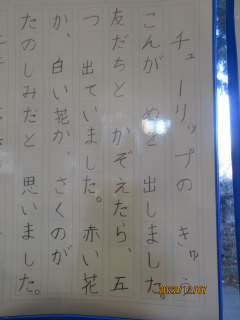 チューリップの きゅう
こんが めを 出しました。
友だちと かぞえたら、五
つ 出ていました。赤い花
か、白い花か、さくのが
たのしみだと 思いました。
2022/12/07